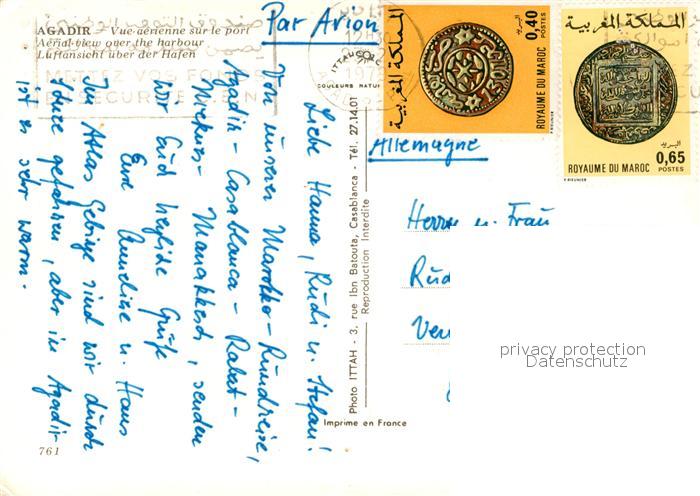 AGADIR — Vue aérienne sur le port
Aérial-view over the harbour
Luftansicht über der Hafen
METTEZ VOS FONDS
Par Avion
COULEURS NATUR
المملكة المغربية
0,40
POSTES
البريد
ROYAUME DU MAROC
المملكة المغربية
البريد
ROYAUME DU MAROC 0,65
POSTES
Allemagne
Liebe Hanna, Rudi u. Stefan!
Von unserer Marokko-Rundreise,
Agadir - Casablanca - Rabat -
Meknes - Marrakkesch, senden
wir Euch herzliche Grüße
Eure Anneliese u. Hans
Im Atlas Gebirge sind wir durch
gefahren, aber in Agadir
ist es sehr warm.
Herrn u. Frau
Rud
Photo ITTAH - 3, rue Ibn Batouta, Casablanca - Tél. 27.14.01
Reproduction Interdite
Imprime en France
761
privacy protection
Datenschutz